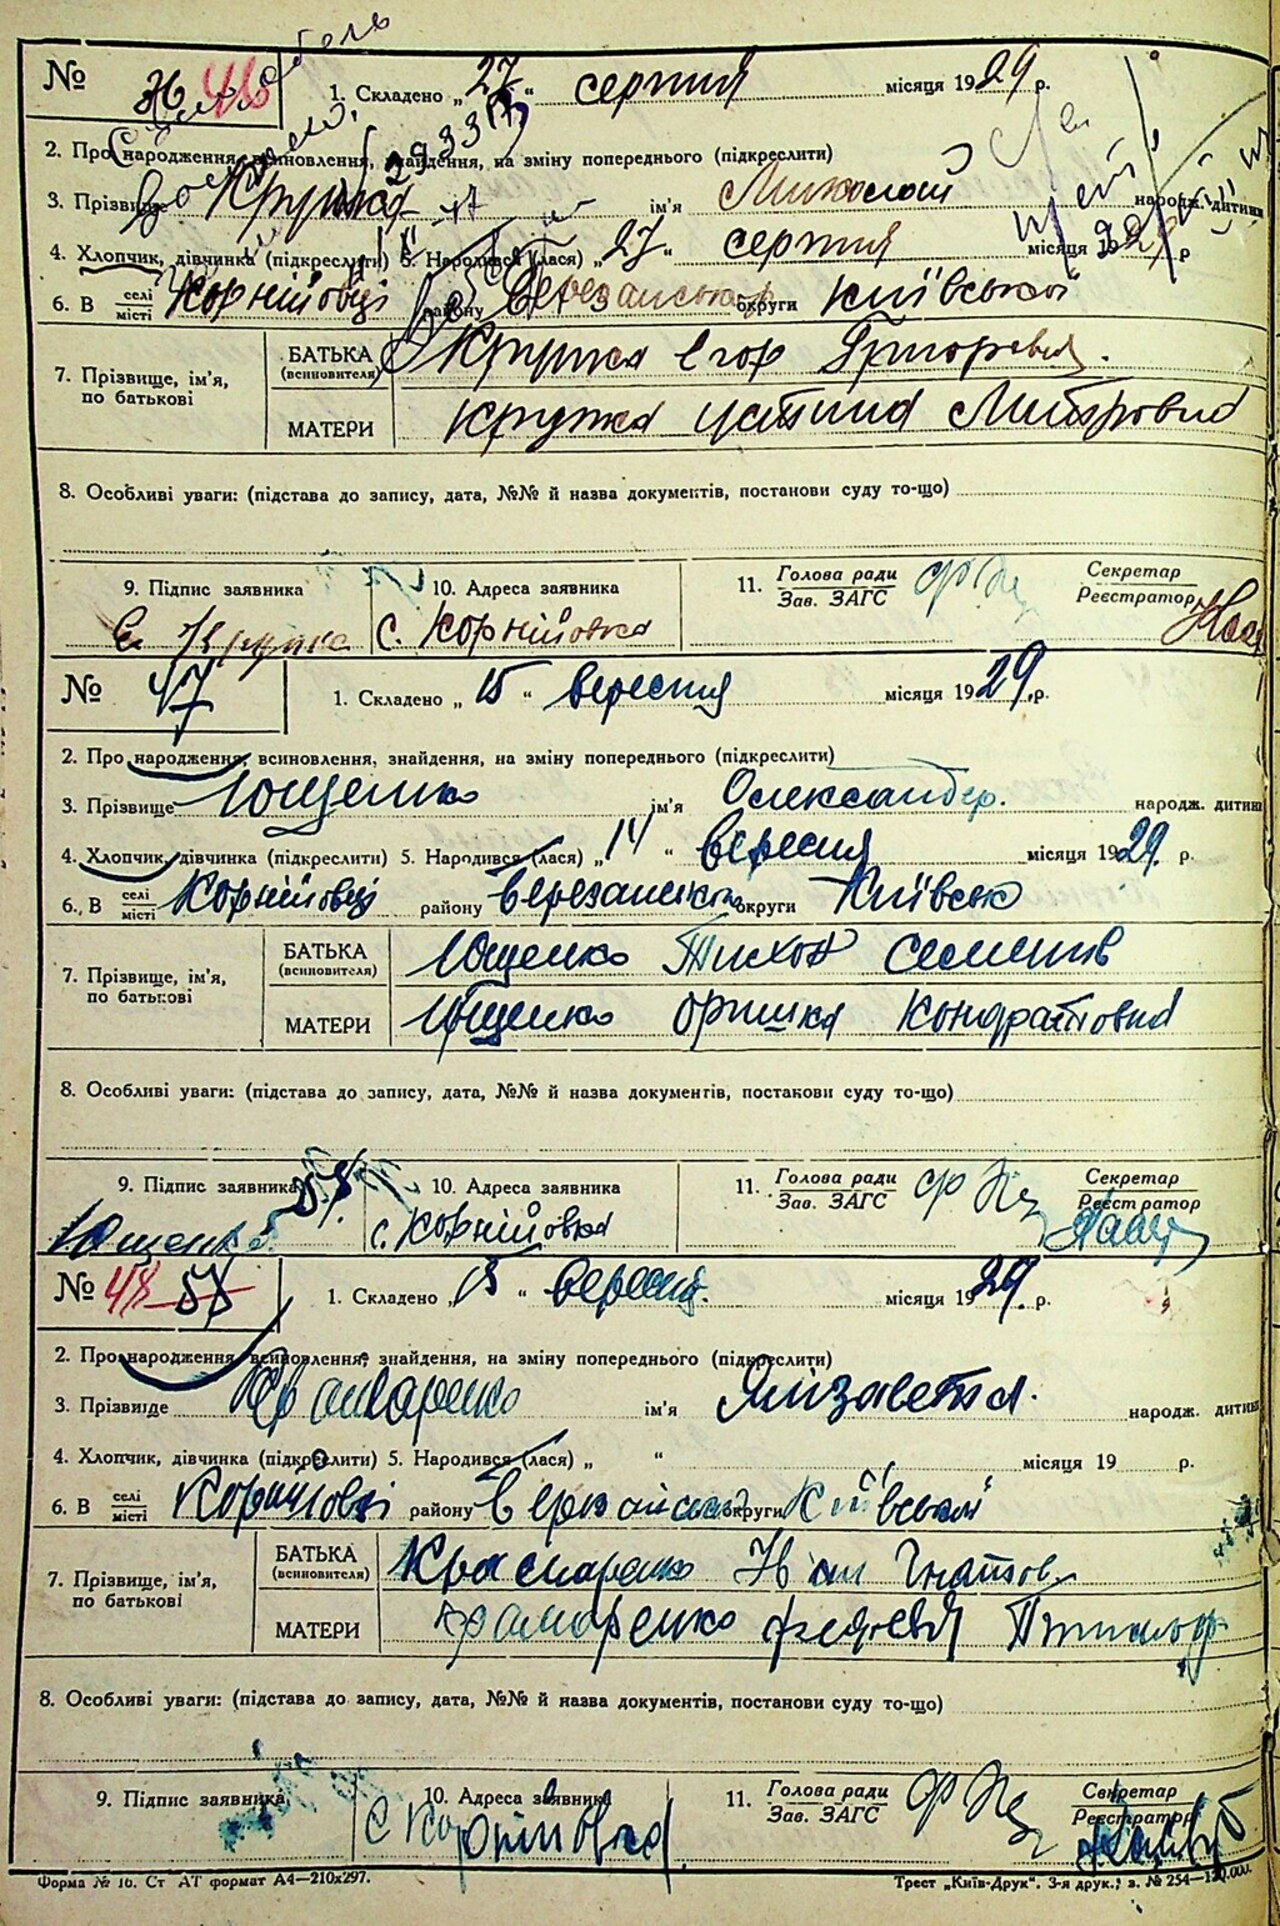 № 46 1. Складено „27“ серпня місяця 1929 р.
2. Про народження, всиновлення, знайдення, на зміну попереднього (підкреслити)
3. Прізвище Крупка ім'я Миколай народж. дитини
4. Хлопчик, дівчинка (підкреслити) 5. Народився (лася) „27“ серпня місяця 1929 р
6. В селі місті Корнійовці району Березанськ округи Київської
7. Прізвище, ім'я, по батькові БАТЬКА (всиновителя) Крупка Єгор Григоревич.
МАТЕРИ Крупка Устина Митровна
8. Особливі уваги: (підстава до запису, дата, №№ й назва документів, постанови суду то-що)
9. Підпис заявника 10. Адреса заявника 11. Голова ради Зав. ЗАГС Секретар Реєстратор
Є Крупка с. Корнійовка
№ 47 1. Складено „15“ вересня місяця 1929 р.
2. Про народження, всиновлення, знайдення, на зміну попереднього (підкреслити)
3. Прізвище Ющенко ім'я Олександер. народж. дитини
4. Хлопчик, дівчинка (підкреслити) 5. Народився (лася) „14“ вересня місяця 1929. р.
6. В селі місті Корнійовці району Березанськ округи Київськ
7. Прізвище, ім'я, по батькові БАТЬКА (всиновителя) Ющенко Тихон Семенів
МАТЕРИ Ющенко Оришка Кондратовна
8. Особливі уваги: (підстава до запису, дата, №№ й назва документів, постанови суду то-що)
9. Підпис заявника 10. Адреса заявника 11. Голова ради Зав. ЗАГС Секретар Реєстратор
Ющенко с. Корнійовка
№ 48 58 1. Складено „15“ вересня. місяця 1929. р.
2. Про народження, всиновлення, знайдення, на зміну попереднього (підкреслити)
3. Прізвище Крамаренко ім'я Лизавета. народж. дитини
4. Хлопчик, дівчинка (підкреслити) 5. Народився (лася) „ “ місяця 19 р.
6. В селі місті Корнійовці району Березанськ округи Київської
7. Прізвище, ім'я, по батькові БАТЬКА (всиновителя) Крамаренко Іван Гнатов.
МАТЕРИ Крамаренко
8. Особливі уваги: (підстава до запису, дата, №№ й назва документів, постанови суду то-що)
9. Підпис заявника 10. Адреса заявника 11. Голова ради Зав. ЗАГС Секретар Реєстратор
С Корнійовка
Форма № 16. Ст АТ формат А4—210х297. Трест „Київ-Друк“. 3-я друк., з. № 254—120.000.